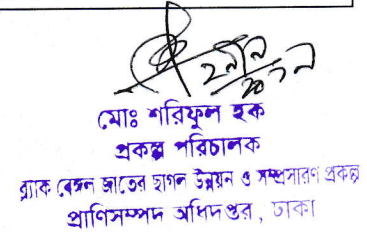 মোঃ শরিফুল হক
প্রকল্প পরিচালক
ব্ল্যাক বেঙ্গল জাতের ছাগল উন্নয়ন ও সম্প্রসারণ প্রকল্প
প্রাণিসম্পদ অধিদপ্তর, ঢাকা